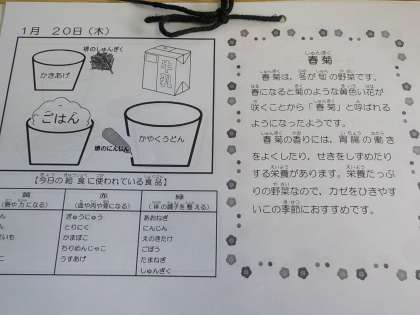 1月 20日（木）
畑のしゅんぎく
かきあげ
牛乳
ごはん
畑のにんじん
かやくうどん
【今日の給食に使われている食品】
黄 赤 緑
（熱や力になる） （血や肉や骨になる） （体の調子を整える）
ぎゅうにゅう あおねぎ
とりにく にんじん
かまぼこ えのきたけ
ちりめんじゃこ ごぼう
うすあげ たまねぎ
しゅんぎく
春菊
春菊は、冬が旬の野菜です。
春になると菊のような黄色い花が
咲くことから「春菊」と呼ばれる
ようになったようです。
春菊の香りには、胃腸の働き
をよくしたり、せきをしずめたり
する栄養があります。栄養たっぷ
りの野菜なので、カゼをひきやす
いこの季節におすすめです。